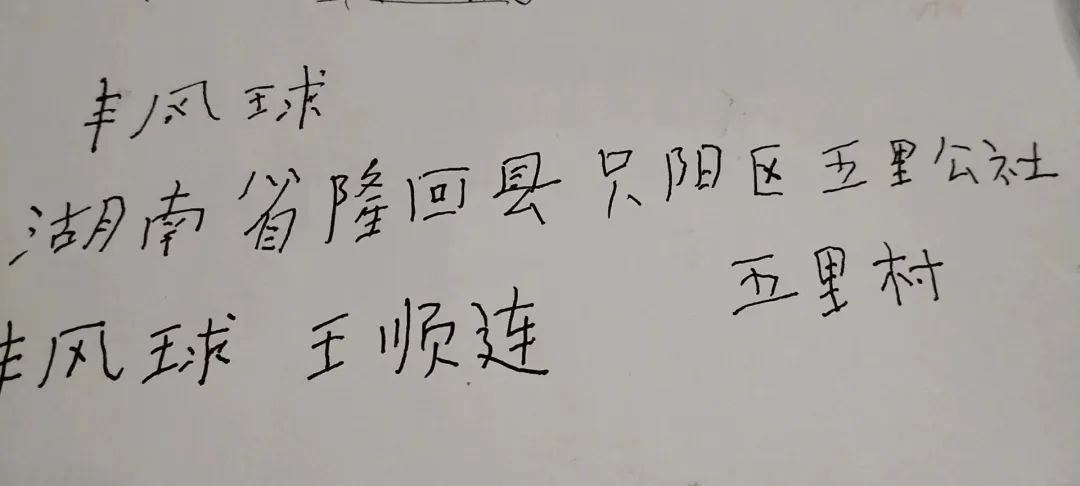 丰风球
湖南省隆回县只阳区五里公社
五里村
丰风球 王顺连